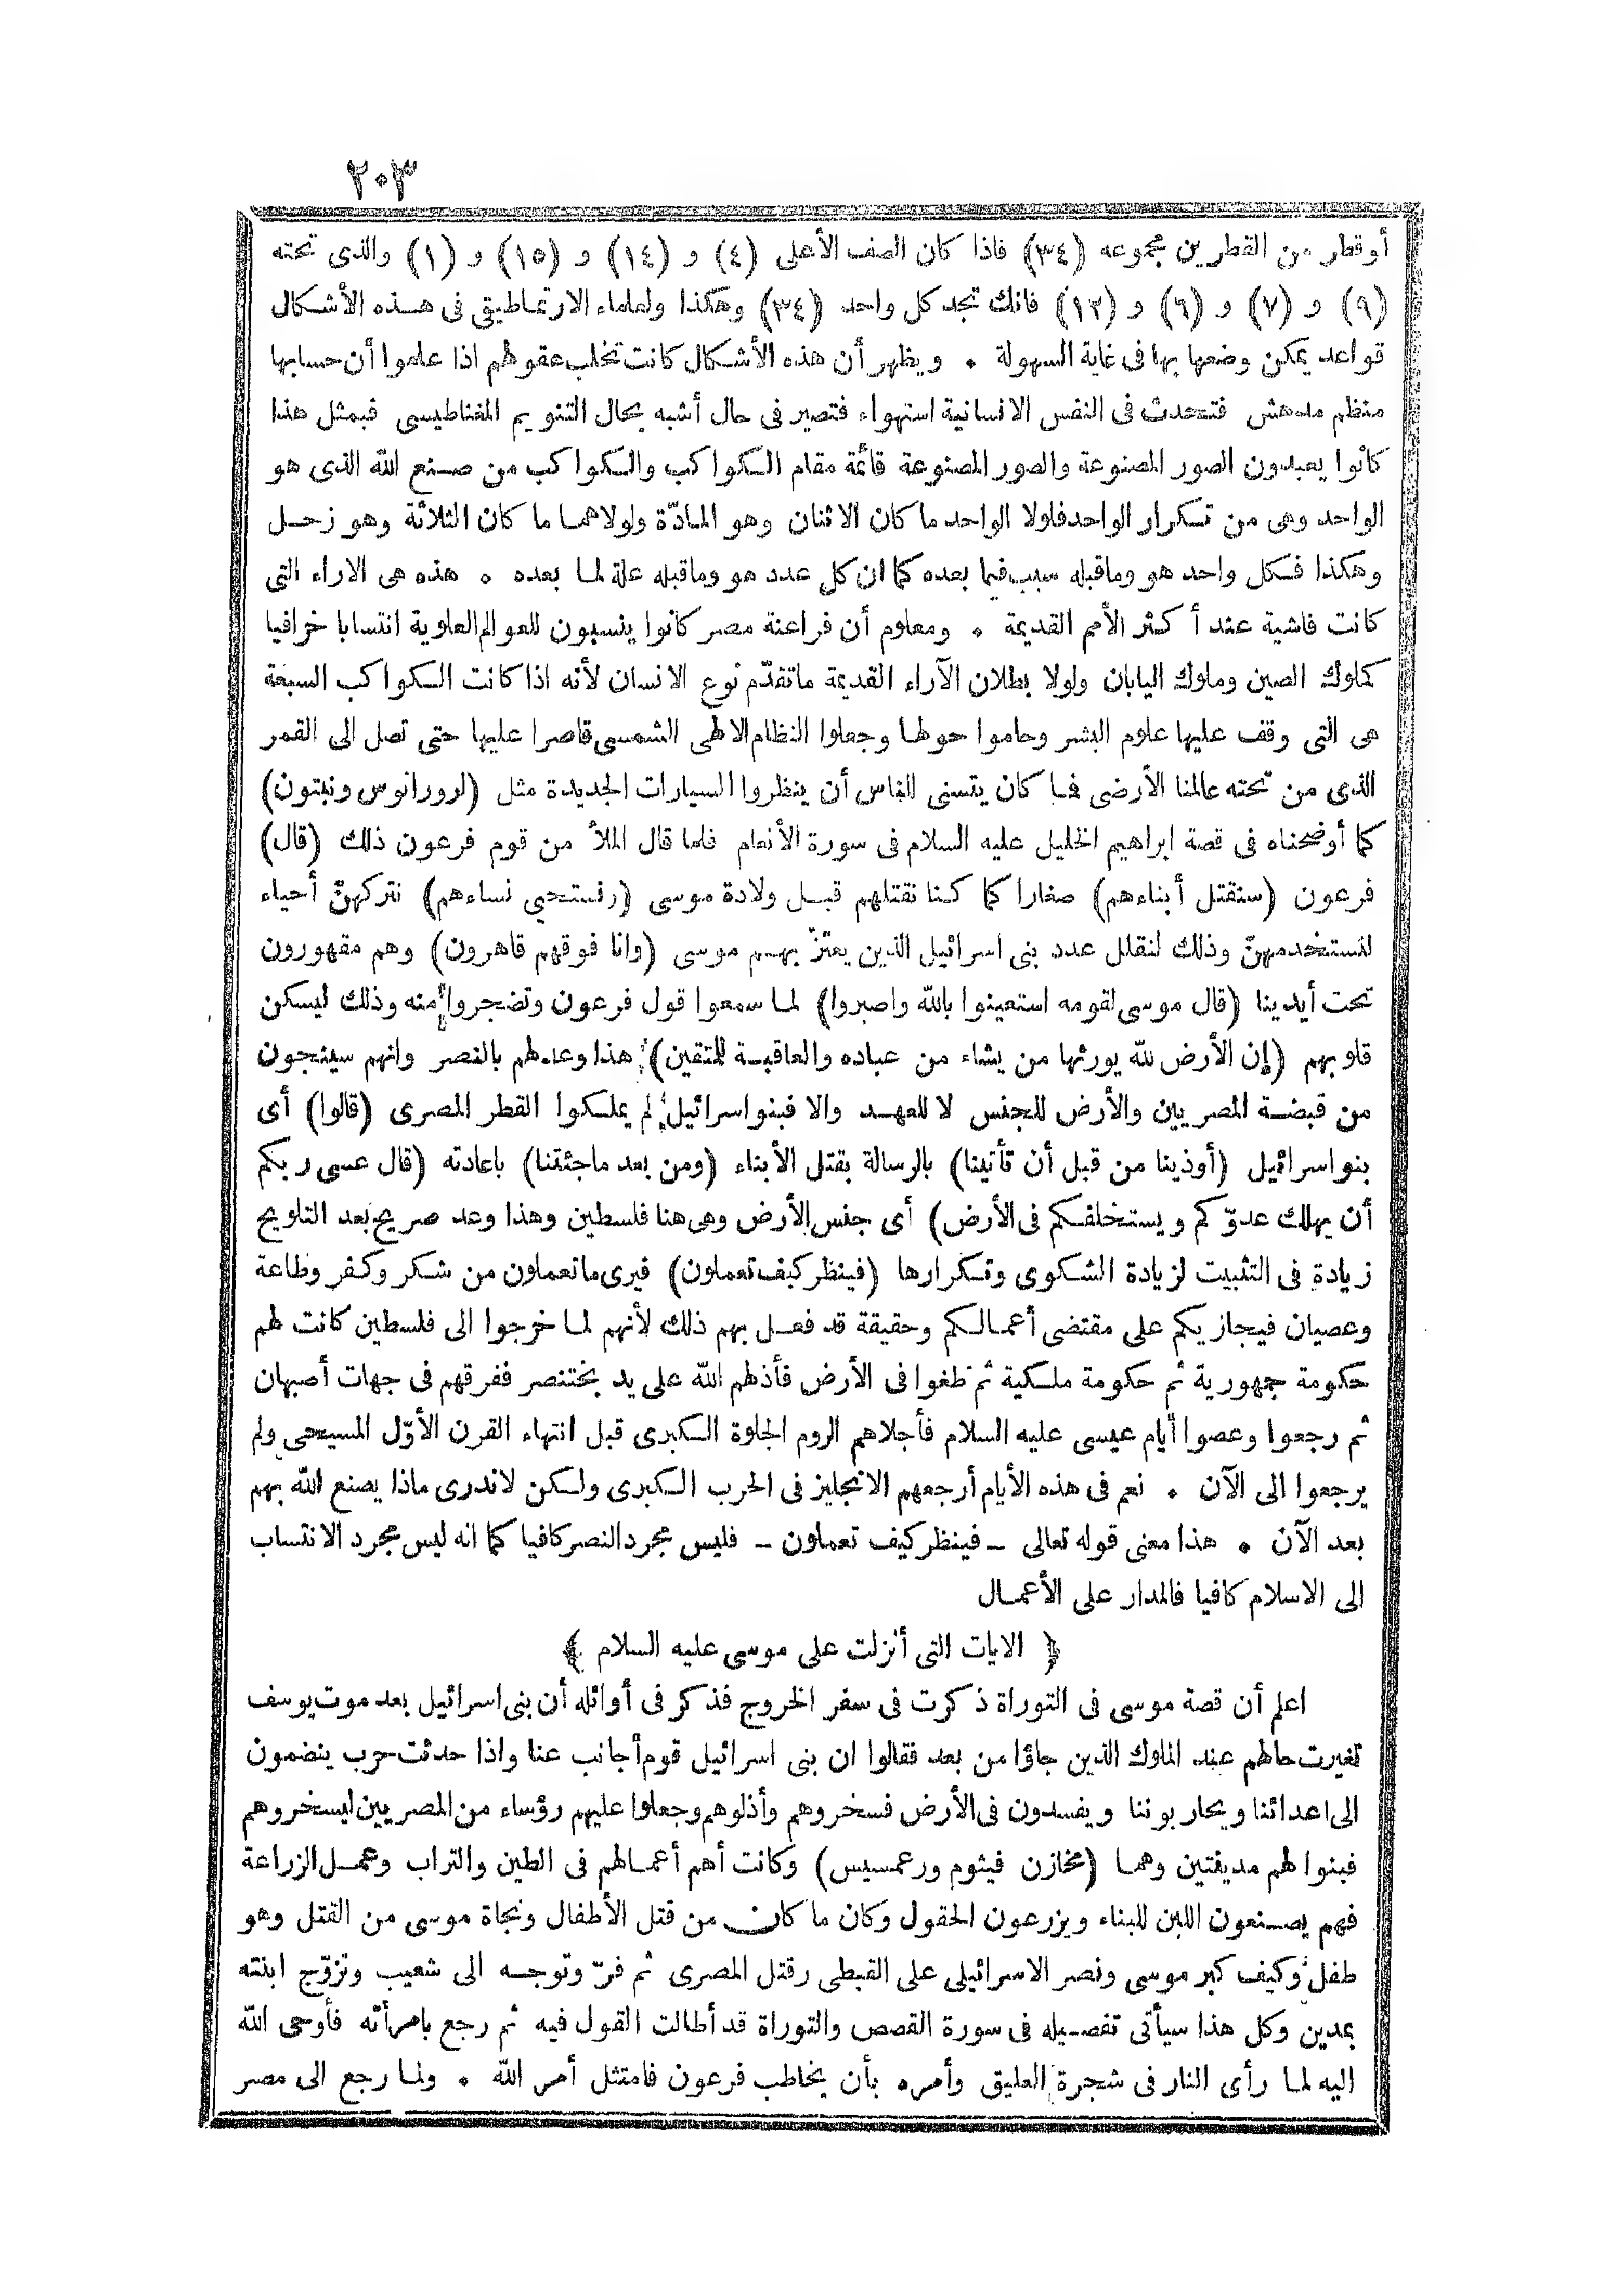 ٢٠٣
أو قطر من القطرين مجموعه (٣٤) فاذا كان الصف الأعلى (٤) و (١٤) و (١٥) و (١) والذى تحته
(٩) و (٧) و (٦) و (١٢) فانك تجد كل واحد (٣٤) وهكذا ولعلماء الارتماطيقى فى هذه الأشكال
قواعد يمكن وضعها بها فى غاية السهولة * ويظهر أن هذه الأشكال كانت تخلب عقولهم اذا علموا أن حسابها
منظم مدهش فتحدث فى النفس الانسانية استهواء فتصير فى حال أشبه بحال التنويم المغناطيسى فبمثل هذا
كانوا يعبدون الصور المصنوعة والصور المصنوعة قائمة مقام الكواكب والكواكب من صنع الله الذى هو
الواحد وهى من تكرار الواحد فلولا الواحد ما كان الاثنان وهو المادّة ولولاهما ما كان الثلاثة وهو زحل
وهكذا فكل واحد هو وماقبله سبب فيما بعده كما ان كل عدد هو وماقبله علة لما بعده * هذه هى الاراء التى
كانت فاشية عند أكثر الأمم القديمة * ومعلوم أن فراعنة مصر كانوا ينسبون للعوالم العلوية انتسابا خرافيا
كملوك الصين وملوك اليابان ولولا بطلان الآراء القديمة ماتقدّم نوع الانسان لأنه اذا كانت الكواكب السبعة
هى التى وقف عليها علوم البشر وحاموا حولها وجعلوا النظام الالهى الشمسى قاصرا عليها حتى تصل الى القمر
الذى من تحته عالمنا الأرضى فما كان يتسنى للناس أن ينظروا السيارات الجديدة مثل (اورانوس ونبتون)
كما أوضحناه فى قصة ابراهيم الخليل عليه السلام فى سورة الأنعام فلما قال الملأ من قوم فرعون ذلك (قال)
فرعون (سنقتل أبناءهم) صغارا كما كنا نقتلهم قبل ولادة موسى (ونستحيي نساءهم) نتركهنّ أحياء
لنستخدمهنّ وذلك لنقلل عدد بنى اسرائيل الذين يعتزّ بهم موسى (وانا فوقهم قاهرون) وهم مقهورون
تحت أيدينا (قال موسى لقومه استعينوا بالله واصبروا) لما سمعوا قول فرعون وتضجروا منه وذلك ليسكن
قلوبهم (إن الأرض لله يورثها من يشاء من عباده والعاقبة للمتقين) هذا وعدلهم بالنصر وانهم سينجون
من قبضة المصريين والأرض للجنس لا للعهد والا فبنو اسرائيل لم يملكوا القطر المصرى (قالوا) أى
بنو اسرائيل (أوذينا من قبل أن تأتينا) بالرسالة بقتل الأبناء (ومن بعد ماجئتنا) باعادته (قال عسى ربكم
أن يهلك عدوّكم ويستخلفكم فى الأرض) أى جنس الأرض وهى هنا فلسطين وهذا وعد صريح بعد التلويح
زيادة فى التثبيت لزيادة الشكوى وتكرارها (فينظر كيف تعملون) فيرى ماتعملون من شكر وكفر وطاعة
وعصيان فيجازيكم على مقتضى أعمالكم وحقيقة قد فعل بهم ذلك لأنهم لما خرجوا الى فلسطين كانت لهم
حكومة جمهورية ثم حكومة ملكية ثم طغوا فى الأرض فأذلهم الله على يد بختنصر ففرقهم فى جهات أصبهان
ثم رجعوا وعصوا أيام عيسى عليه السلام فأجلاهم الروم الجلوة الكبرى قبل انتهاء القرن الأوّل المسيحى ولم
يرجعوا الى الآن * نعم فى هذه الأيام أرجعهم الانجليز فى الحرب الكبرى ولكن لاندرى ماذا يصنع الله بهم
بعد الآن * هذا معنى قوله تعالى - فينظر كيف تعملون - فليس مجرد النصر كافيا كما انه ليس مجرد الانتساب
الى الاسلام كافيا فالمدار على الأعمال
﴿ الايات التى أنزلت على موسى عليه السلام ﴾
اعلم أن قصة موسى فى التوراة ذكرت فى سفر الخروج فذكر فى أوائله أن بنى اسرائيل بعد موت يوسف
تغيرت حالهم عند الملوك الذين جاؤا من بعد فقالوا ان بنى اسرائيل قوم أجانب عنا واذا حدثت حرب ينضمون
الى اعدائنا ويحاربوننا ويفسدون فى الأرض فسخروهم وأذلوهم وجعلوا عليهم رؤساء من المصريين ليسخروهم
فبنوا لهم مدينتين وهما (مخازن فيثوم ورعمسيس) وكانت أهم أعمالهم فى الطين والتراب وعمل الزراعة
فهم يصنعون اللبن للبناء ويزرعون الحقول وكان ما كان من قتل الأطفال ونجاة موسى من القتل وهو
طفل وكيف كبر موسى ونصر الاسرائيلى على القبطى وقتل المصرى ثم فرّ وتوجه الى شعيب وتزوّج ابنته
بمدين وكل هذا سيأتى تفصيله فى سورة القصص والتوراة قد أطالت القول فيه ثم رجع بامرأته فأوحى الله
اليه لما رأى النار فى شجرة العليق وأمره بأن يخاطب فرعون فامتثل أمر الله * ولما رجع الى مصر